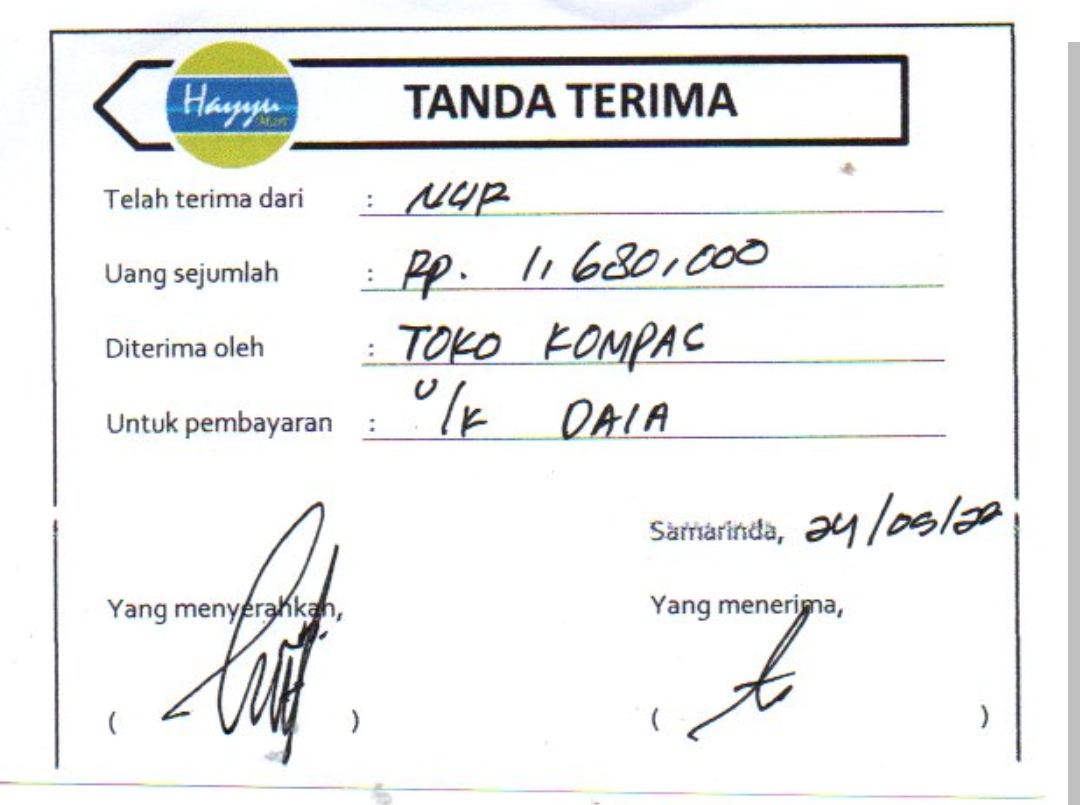 Hayyu
Mart
TANDA TERIMA
Telah terima dari : NUR
Uang sejumlah : Rp. 1,680,000
Diterima oleh : TOKO KOMPAS
Untuk pembayaran : U/K DAIA
Samarinda, 24/05/22
Yang menyerahkan, Yang menerima,
( ) ( )